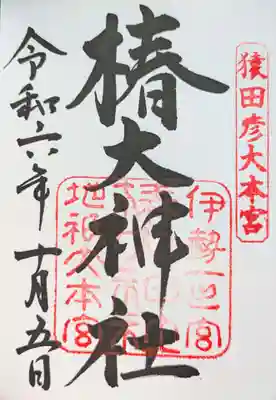 猿田彦大本宮
椿大神社
伊勢一之宮
地祇大本宮
令和六年十月五日